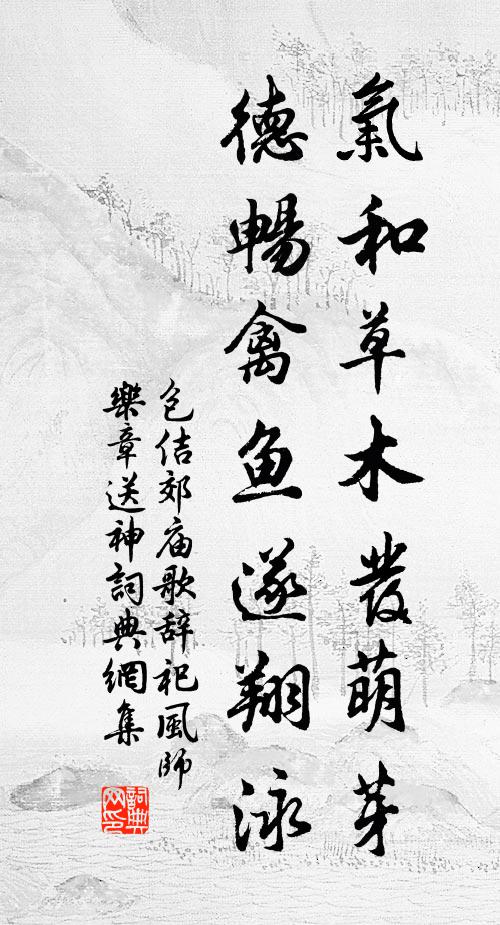 氣和草木發萌芽
德暢禽魚遂翔泳
包佶郊庙歌辞祀風師
樂章送神詞典網集
詞典网印